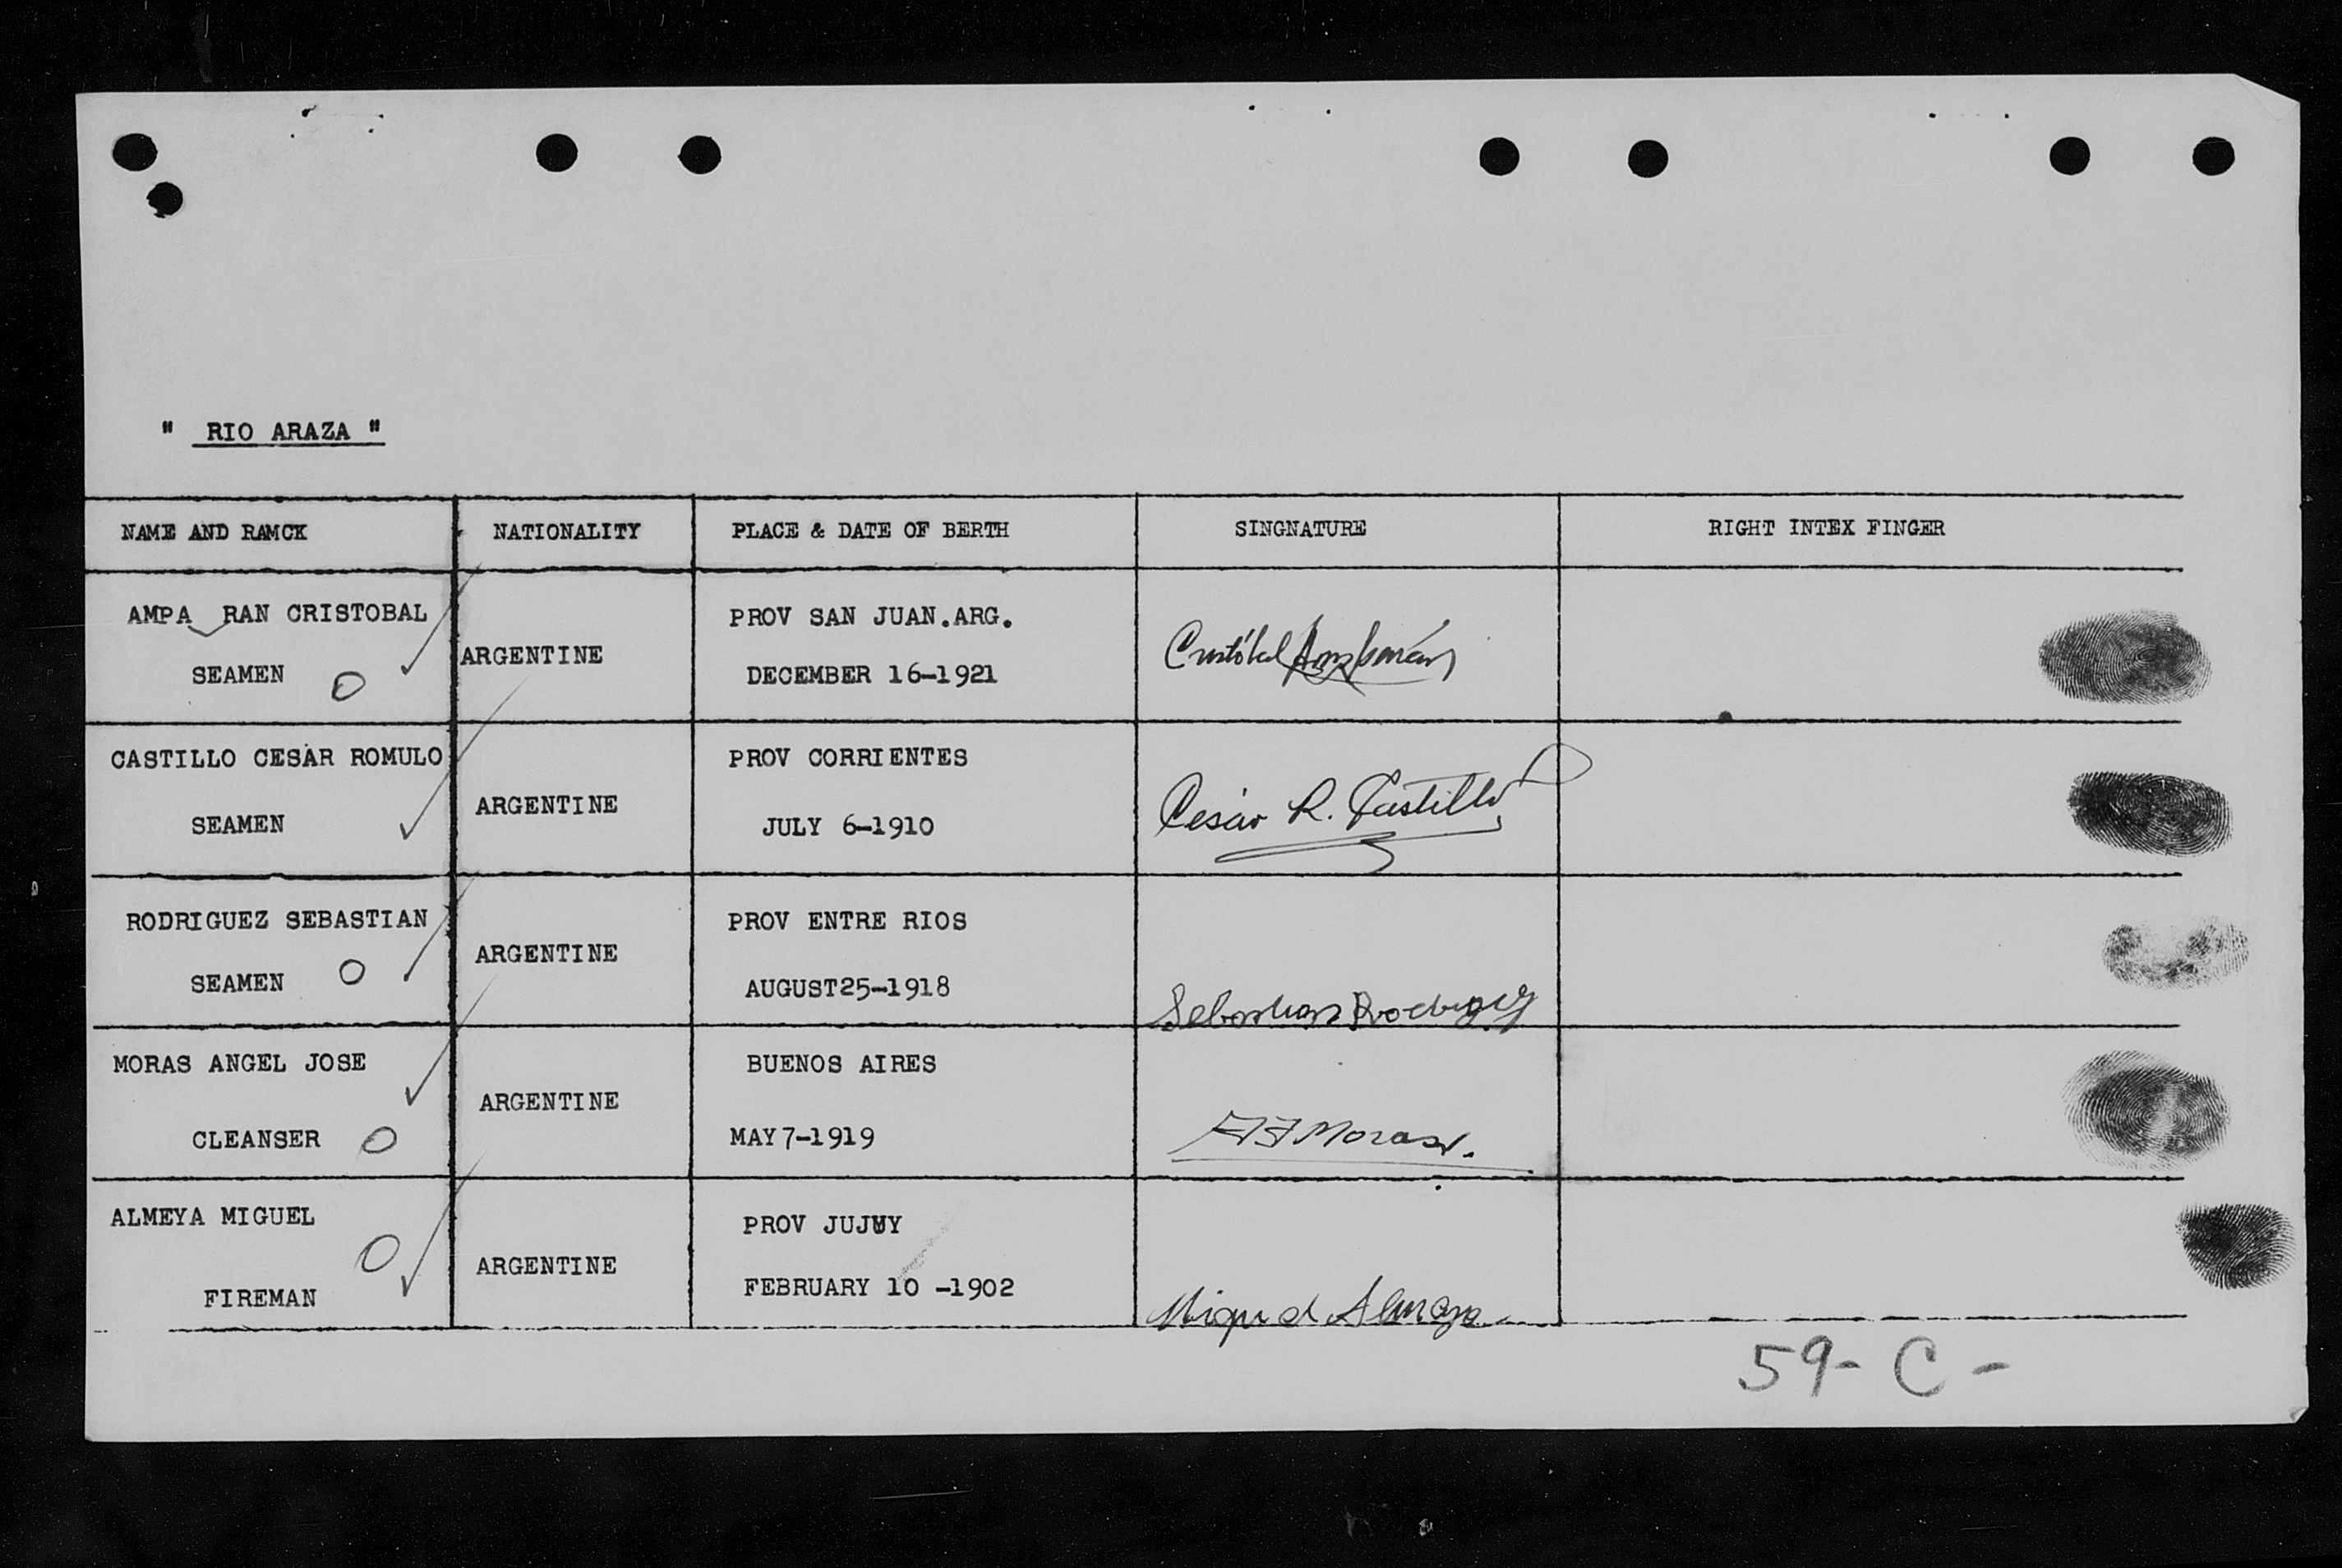 " RIO ARAZA "
NAME AND RAMCK NATIONALITY PLACE & DATE OF BERTH SINGNATURE RIGHT INTEX FINGER
AMPA RAN CRISTOBAL
SEAMEN O
ARGENTINE
PROV SAN JUAN.ARG.
DECEMBER 16-1921
Cristóbal
CASTILLO CESAR ROMULO
SEAMEN
ARGENTINE
PROV CORRIENTES
JULY 6-1910
Cesár R. Castillo
RODRIGUEZ SEBASTIAN
SEAMEN O
ARGENTINE
PROV ENTRE RIOS
AUGUST25-1918
Sebastian Rodriguez
MORAS ANGEL JOSE
CLEANSER O
ARGENTINE
BUENOS AIRES
MAY7-1919
AJ Moras.
ALMEYA MIGUEL
O
FIREMAN
ARGENTINE
PROV JUJUY
FEBRUARY 10 -1902
Miguel
59- C -